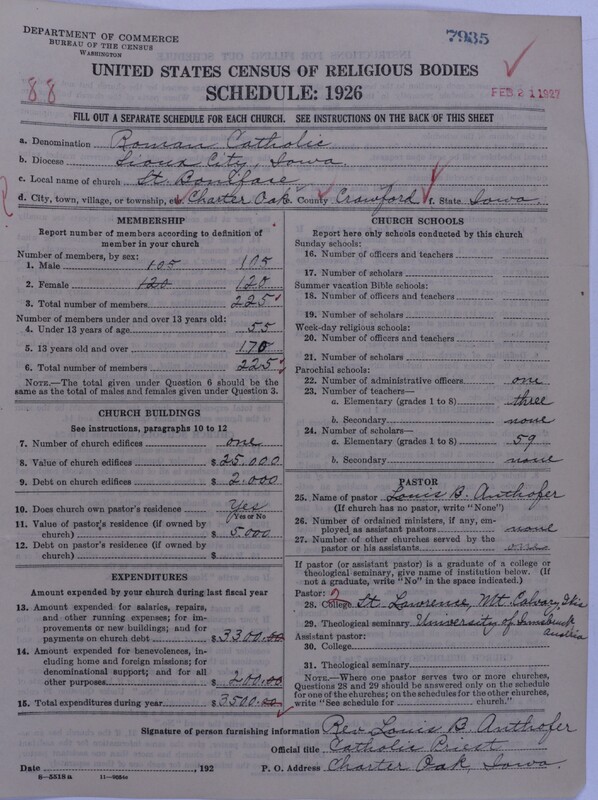 DEPARTMENT OF COMMERCE
BUREAU OF THE CENSUS
WASHINGTON
7935
88
UNITED STATES CENSUS OF RELIGIOUS BODIES
SCHEDULE: 1926
FEB 21 1927
FILL OUT A SEPARATE SCHEDULE FOR EACH CHURCH. SEE INSTRUCTIONS ON THE BACK OF THIS SHEET
a. Denomination Roman Catholic
b. Diocese Sioux City, Iowa.
c. Local name of church St. Boniface
d. City, town, village, or township, etc. Charter Oak. County Crawford f. State Iowa.
MEMBERSHIP
Report number of members according to definition of member in your church
Number of members, by sex:
1. Male 105 105
2. Female 120 120
3. Total number of members 225
Number of members under and over 13 years old:
4. Under 13 years of age 55
5. 13 years old and over 170
6. Total number of members 225
NOTE.—The total given under Question 6 should be the same as the total of males and females given under Question 3.
CHURCH BUILDINGS
See instructions, paragraphs 10 to 12
7. Number of church edifices one
8. Value of church edifices $ 25.000
9. Debt on church edifices $ 2.000
10. Does church own pastor's residence Yes
Yes or No
11. Value of pastor's residence (if owned by church) $ 5.000
12. Debt on pastor's residence (if owned by church) $
EXPENDITURES
Amount expended by your church during last fiscal year
13. Amount expended for salaries, repairs,
and other running expenses; for im-
provements or new buildings; and for
payments on church debt $ 3300.00
14. Amount expended for benevolences, in-
cluding home and foreign missions; for
denominational support; and for all
other purposes $ 200.00
15. Total expenditures during year $ 3500.00
CHURCH SCHOOLS
Report here only schools conducted by this church
Sunday schools:
16. Number of officers and teachers
17. Number of scholars
Summer vacation Bible schools:
18. Number of officers and teachers
19. Number of scholars
Week-day religious schools:
20. Number of officers and teachers
21. Number of scholars
Parochial schools:
22. Number of administrative officers one
23. Number of teachers—
a. Elementary (grades 1 to 8) three
b. Secondary none
24. Number of scholars—
a. Elementary (grades 1 to 8) 59
b. Secondary none
PASTOR
25. Name of pastor Louis B. Anthofer
(If church has no pastor, write "None")
26. Number of ordained ministers, if any, em-
ployed as assistant pastors none
27. Number of other churches served by the
pastor or his assistants
If pastor (or assistant pastor) is a graduate of a college or
theological seminary, give name of institution below. (If
not a graduate, write "No" in the space indicated.)
Pastor: 2
28. College St. Lawrence, Mt. Calvary, Wis
29. Theological seminary University of Innsbruck
Austria
Assistant pastor:
30. College
31. Theological seminary
NOTE.—Where one pastor serves two or more churches,
Questions 28 and 29 should be answered only on the schedule
for one of the churches; on the schedules for the other churches,
write "See schedule for church."
Signature of person furnishing information Rev. Louis B. Anthofer
Official title Catholic Priest
Date , 192 P. O. Address Charter Oak, Iowa.